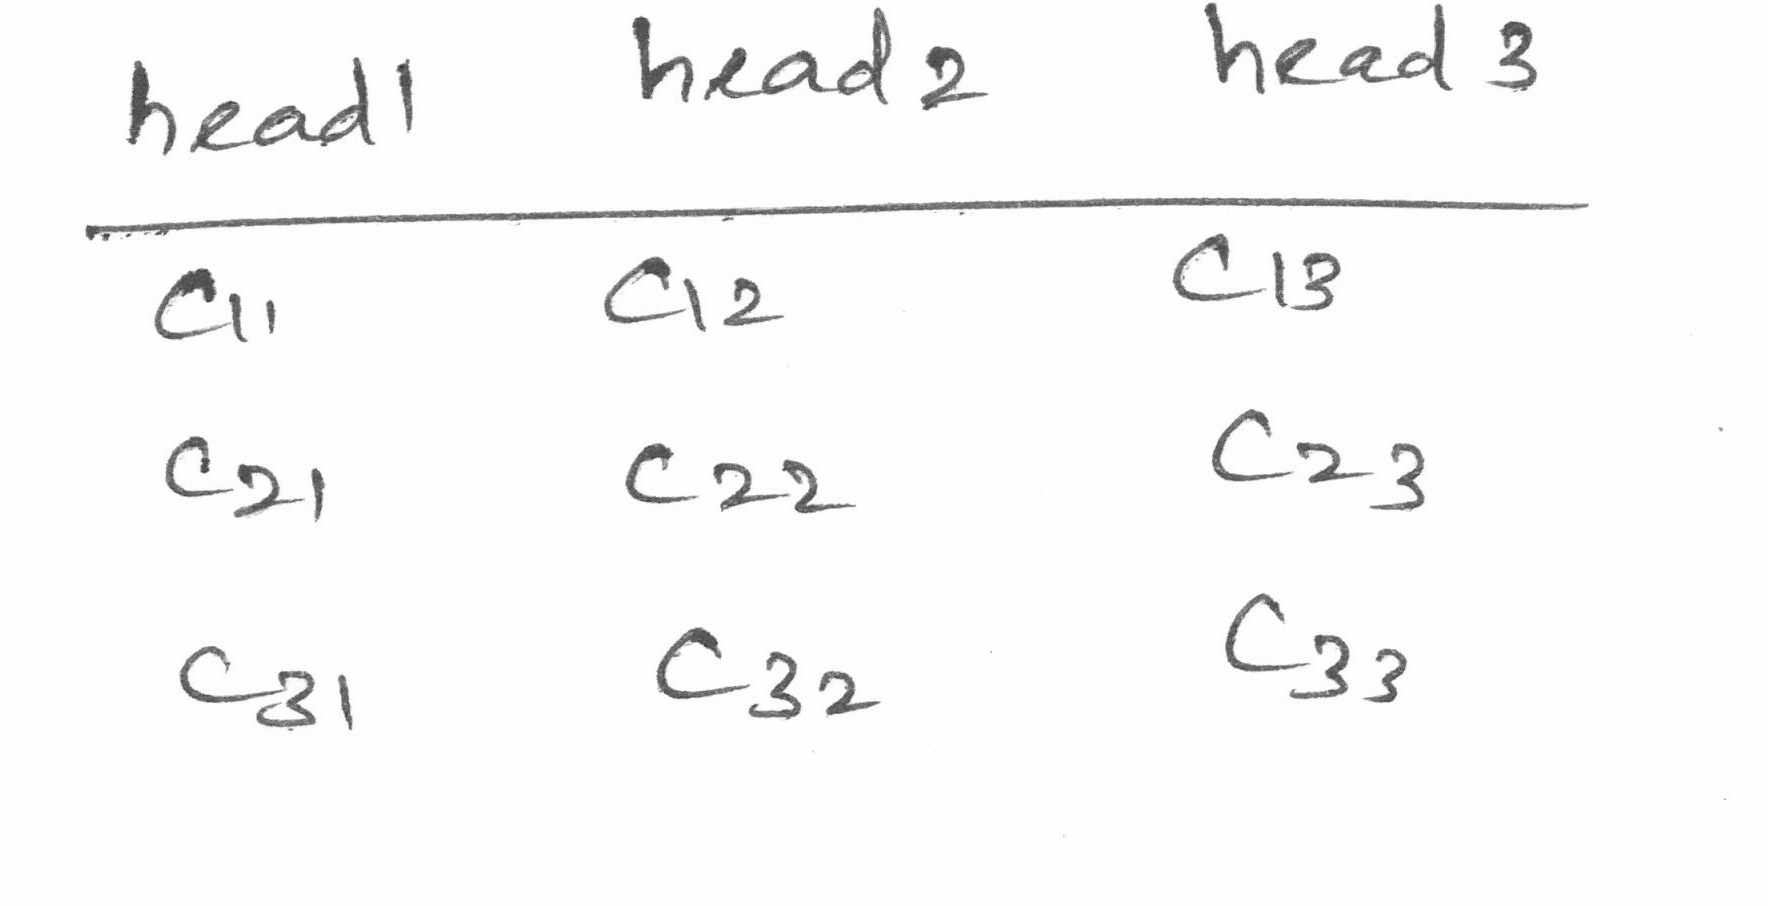 head1 head2 head3
C11 C12 C13
C21 C22 C23
C31 C32 C33